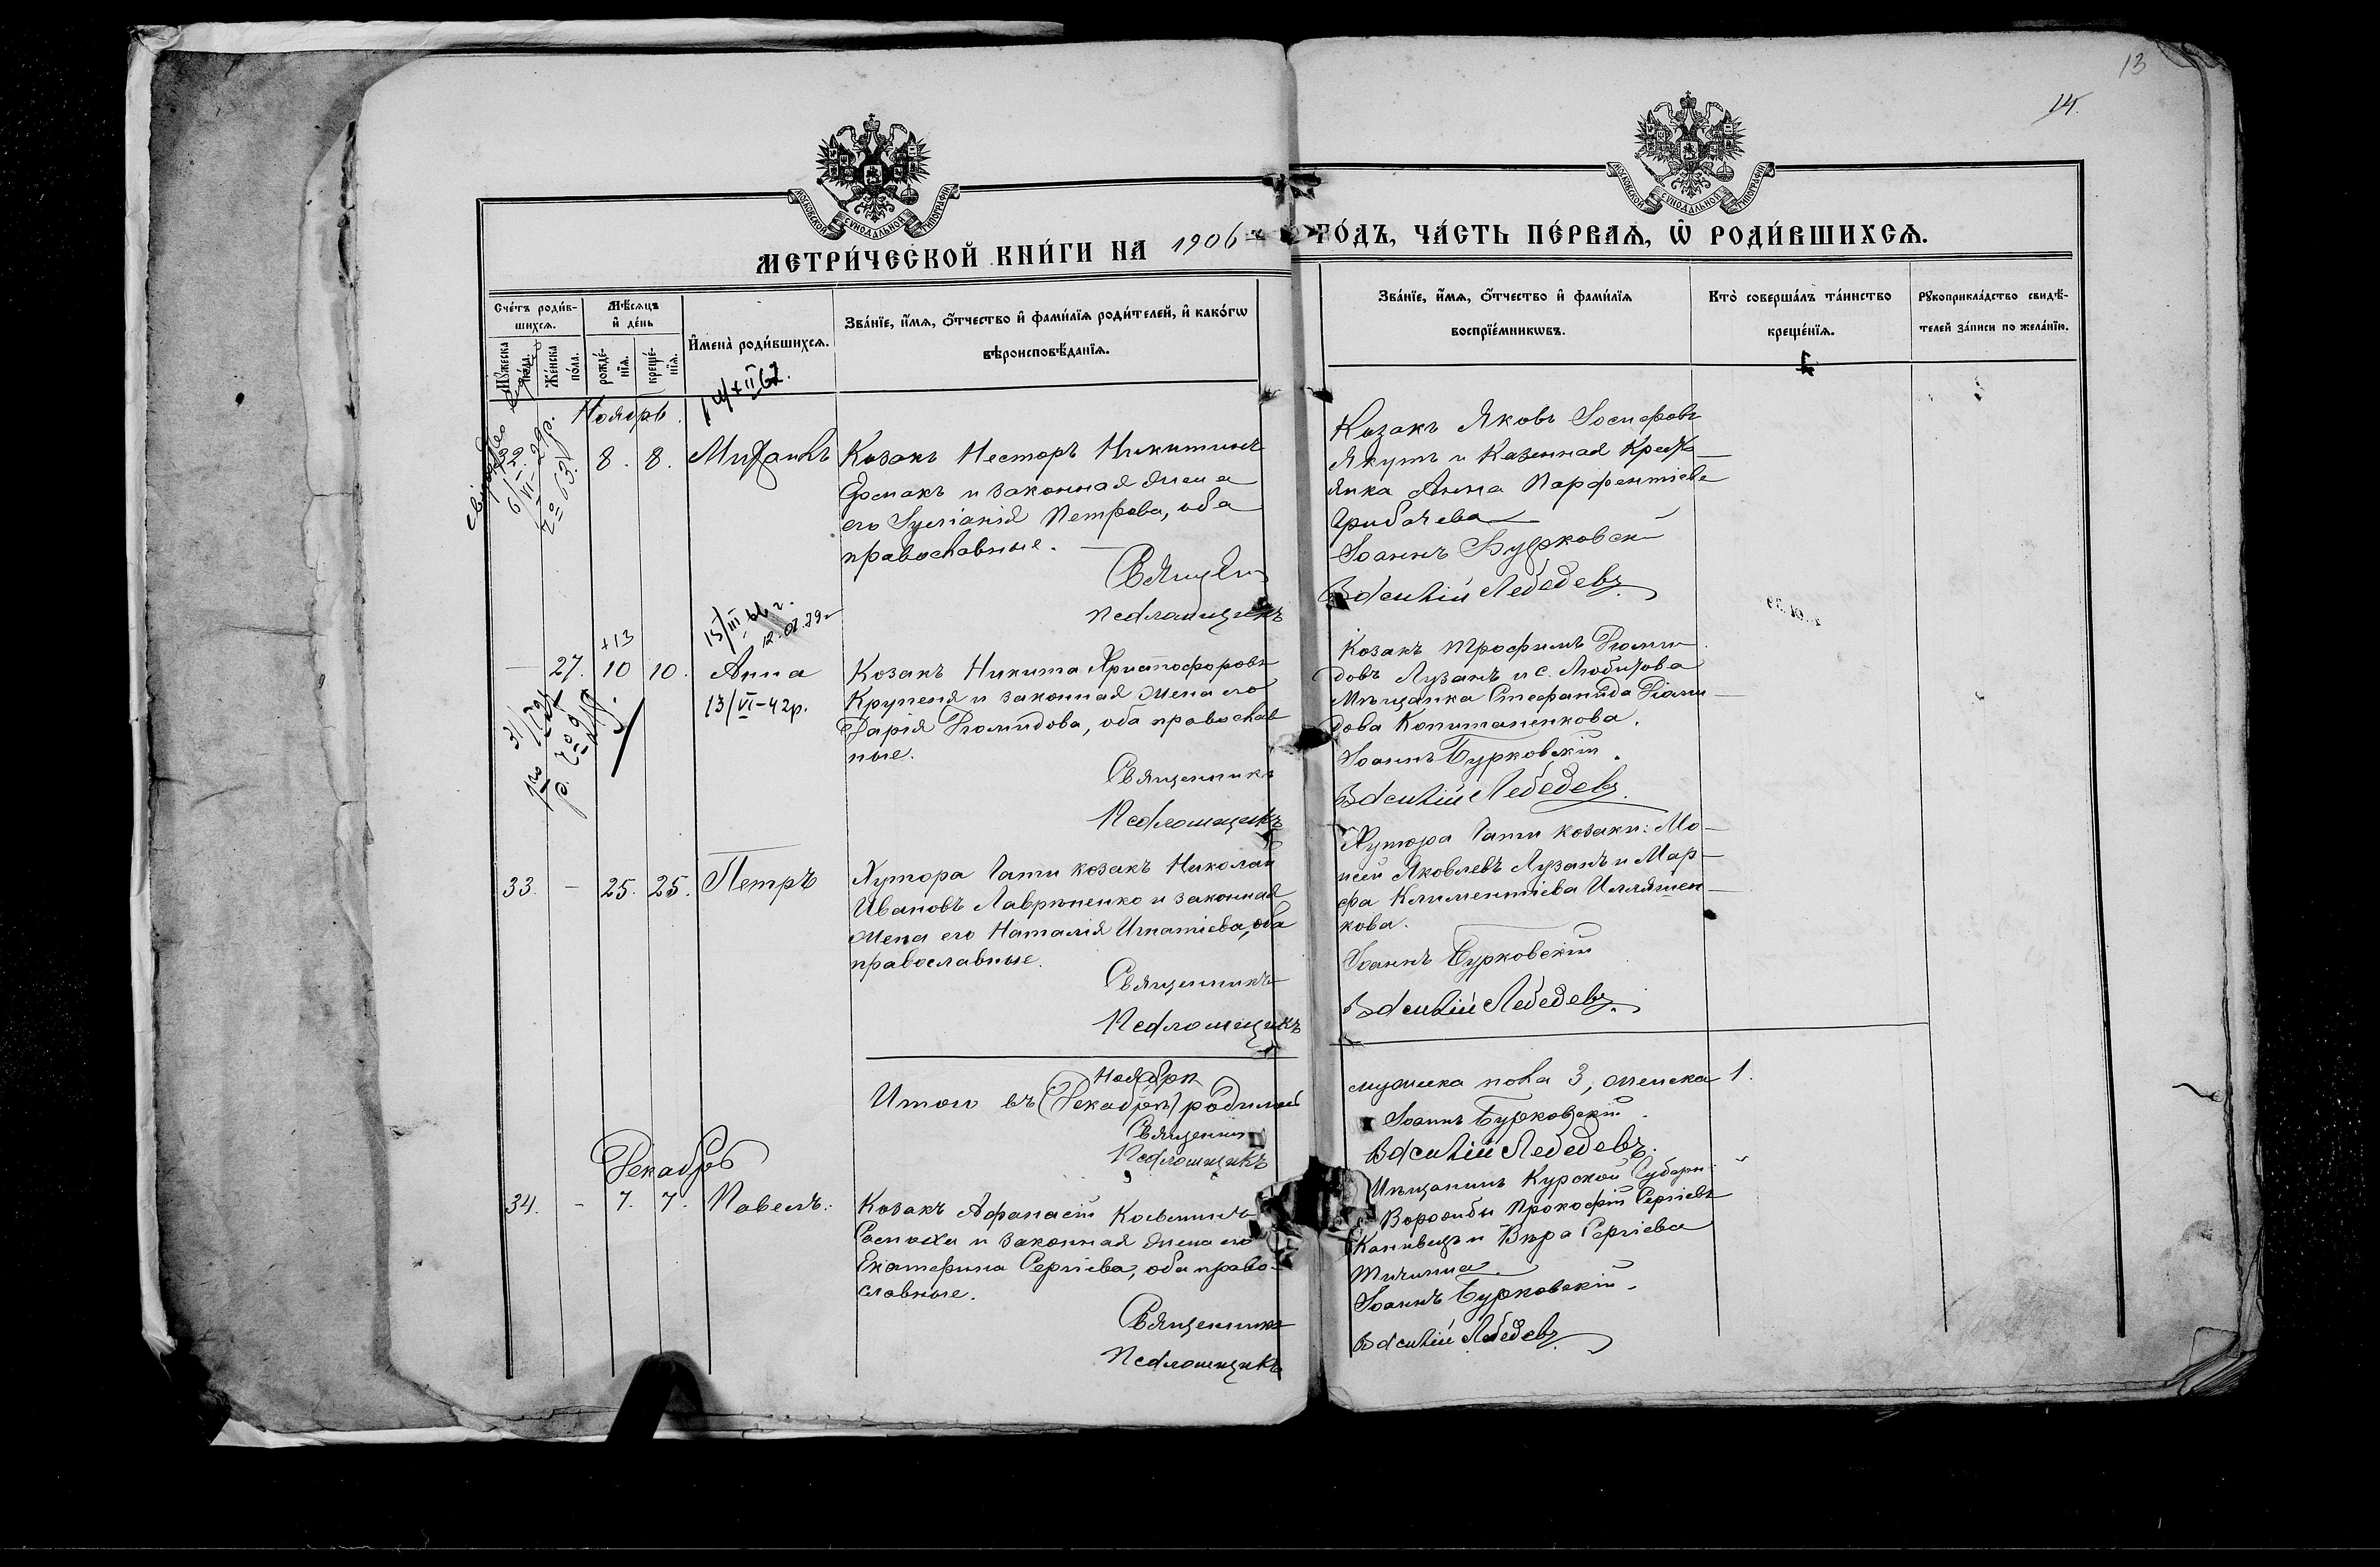 13
14.
МОСКОВСКОЙ СѴНОДАЛЬНОЙ ТИПОГРАФІИ
МОСКОВСКОЙ СѴНОДАЛЬНОЙ ТИПОГРАФІИ
МЕТРИ́ЧЕСКОЙ КНИ́ГИ НА 1906 ГО́ДЪ, ЧА́СТЬ ПЕ́РВАЯ, Ѡ҆ РОДИ́ВШИХСЯ.
Сче́тъ роди́в-
шихся.
Мѣ́сяцъ
и҆ де́нь
Мꙋ́жеска по́ла.
Же́нска по́ла.
рожде́-
нїя.
креще́-
нїя.
И҆мена̀ роди́вшихся.
Зва́нїе, и҆́мя, ѻ҆́тчество и҆ фами́лїя роди́телей, и҆ како́гѡ
вѣроисповѣ́данїя.
Зва́нїе, и҆́мя, ѻ҆́тчество и҆ фами́лїя
воспрїе́мникѡвъ.
Кто̀ соверша́лъ та́инство
креще́нїя.
Рꙋкоприкла́дство свидѣ́-
телей за́писи по жела́нїю.
Ноябрь.
32
8. 8. Михаилъ
Козакъ Несторъ Никитинъ
Ермакъ и законная жена
его Іуліанія Петрова, оба
православные.
Священ
Псаломщикъ
Козакъ Яковъ Іосифовъ
Якутъ и Казенная Крест
янка Анна Парфентіева
Грибачева
Іоаннъ Бурковскій
Василій Лебедевъ.
+13
— 27. 10 10. Анна
13/VI-42р.
Козакъ Никита Христофоровъ
Крупеня и законная жена его
Дарія Діомидова, оба православ
ные.
Священникъ
Псаломщикъ
Козакъ Трофимъ Діоми
довъ Лузанъ и с. Любитова
Мѣщанка Стефанида Діоми
дова Капитаненкова.
Іоаннъ Бурковскій.
Василій Лебедевъ.
33. — 25. 25. Петръ
Хутора Гати козакъ Николай
Ивановъ Лавриненко и законная
жена его Наталія Игнатіева, оба
православные.
Священникъ
Псаломщикъ
Хутора Гати козаки: Мо-
исей Яковлевъ Лузанъ и Мар-
фа Климентіева Илляшен-
кова.
Іоаннъ Бурковскій
Василій Лебедевъ.
Ноябрѣ
Итого въ (Декабрѣ) родилось
Священник
Псаломщикъ
мужеска пола 3, женска 1.
Іоаннъ Бурковскій.
Василій Лебедевъ.
Декабрь
34. - 7. 7. Павелъ.
Козакъ Афанасій Косьминъ
и законная жена его
Екатерина Сергіева, оба право-
славные.
Священникъ
Псаломщикъ
Мѣщанинъ Курской Губерн:
Ворожбы Прокофій Сергіевъ
Канивецъ и Вѣра Сергіева
Іоаннъ Бурковскій.
Василій Лебедевъ